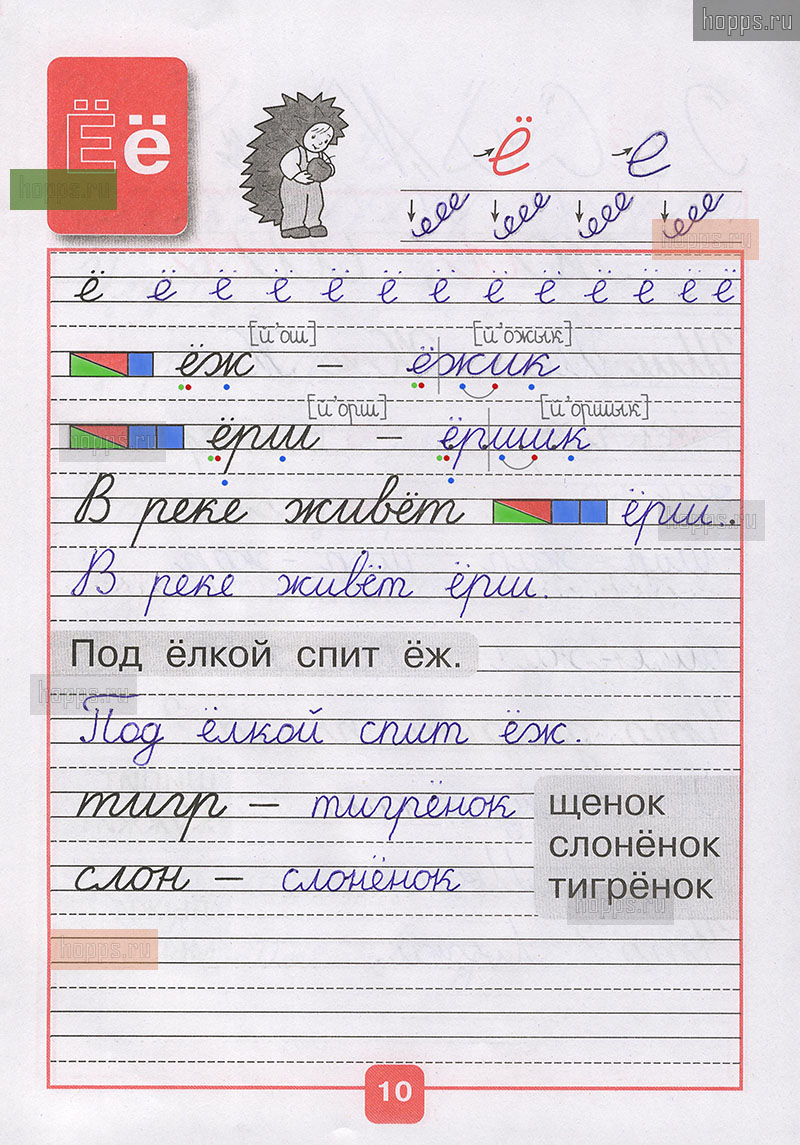 hopps.ru
Ёё
hopps.ru
ё е
еее еее еее еее
hopps.ru
ё ё ё ё ё ё ё ё ё ё ё ё ё
[й'ош] [й'ожык]
ёж – ёжик
[й'орш] [й'оршык]
hopps.ru
ёрш – ёршик
В реке живёт ёрш..
hopps.ru
В реке живёт ёрш.
Под ёлкой спит ёж.
hopps.ru
Под ёлкой спит ёж.
тигр – тигрёнок
щенок
слонёнок
тигрёнок
слон – слонёнок
hopps.ru
hopps.ru
10